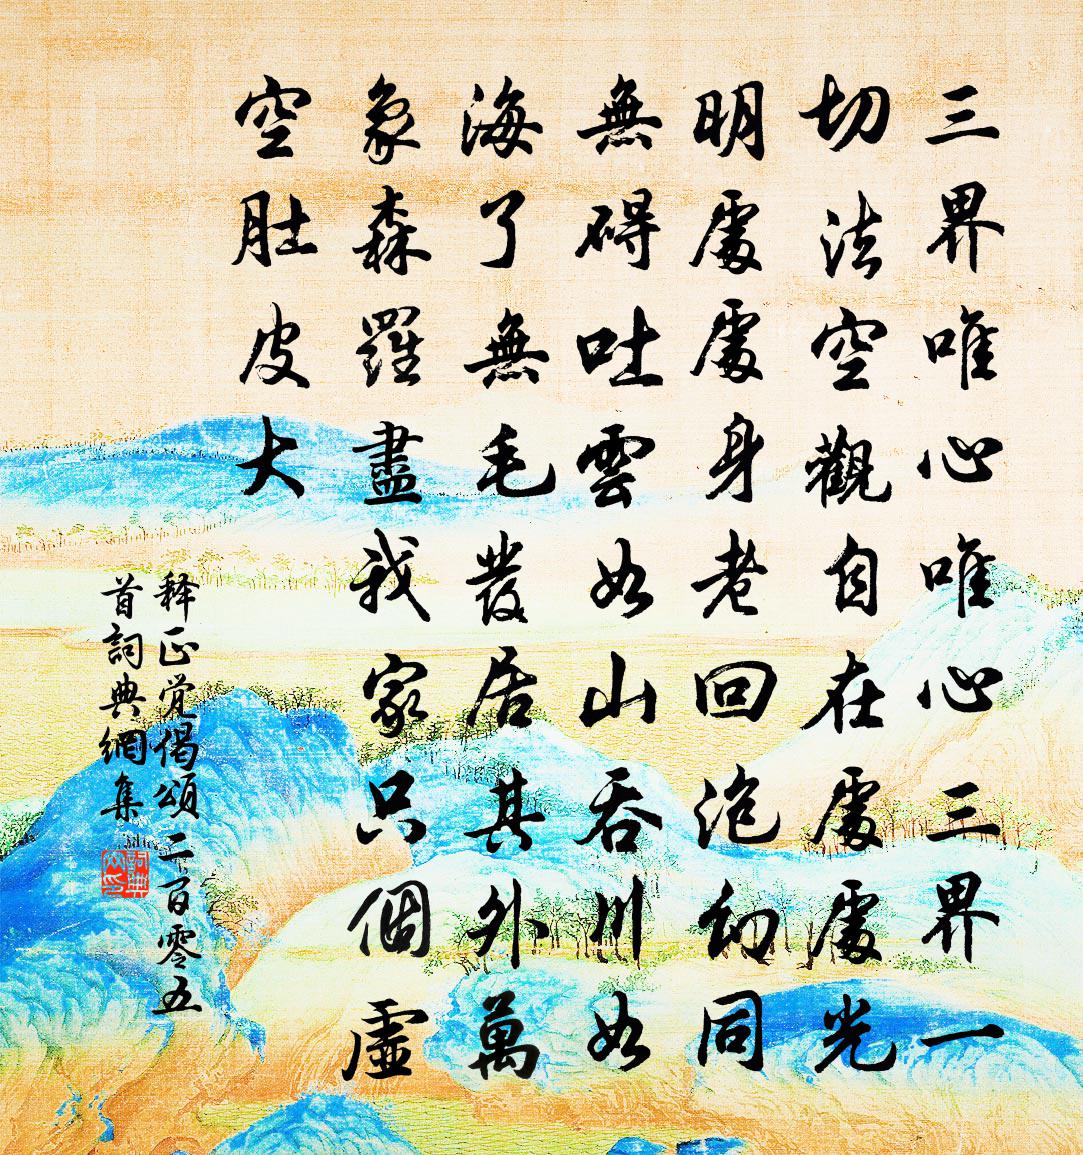 三界唯心唯心三界一
切法空觀自在處處光
明處處身老回泡幻同
無碍吐雲如山吞川如
海了無毛發居其外萬
象森羅盡我家只個虛
空肚皮大
释正觉偈頌二百零五
首詞典網集
詞典